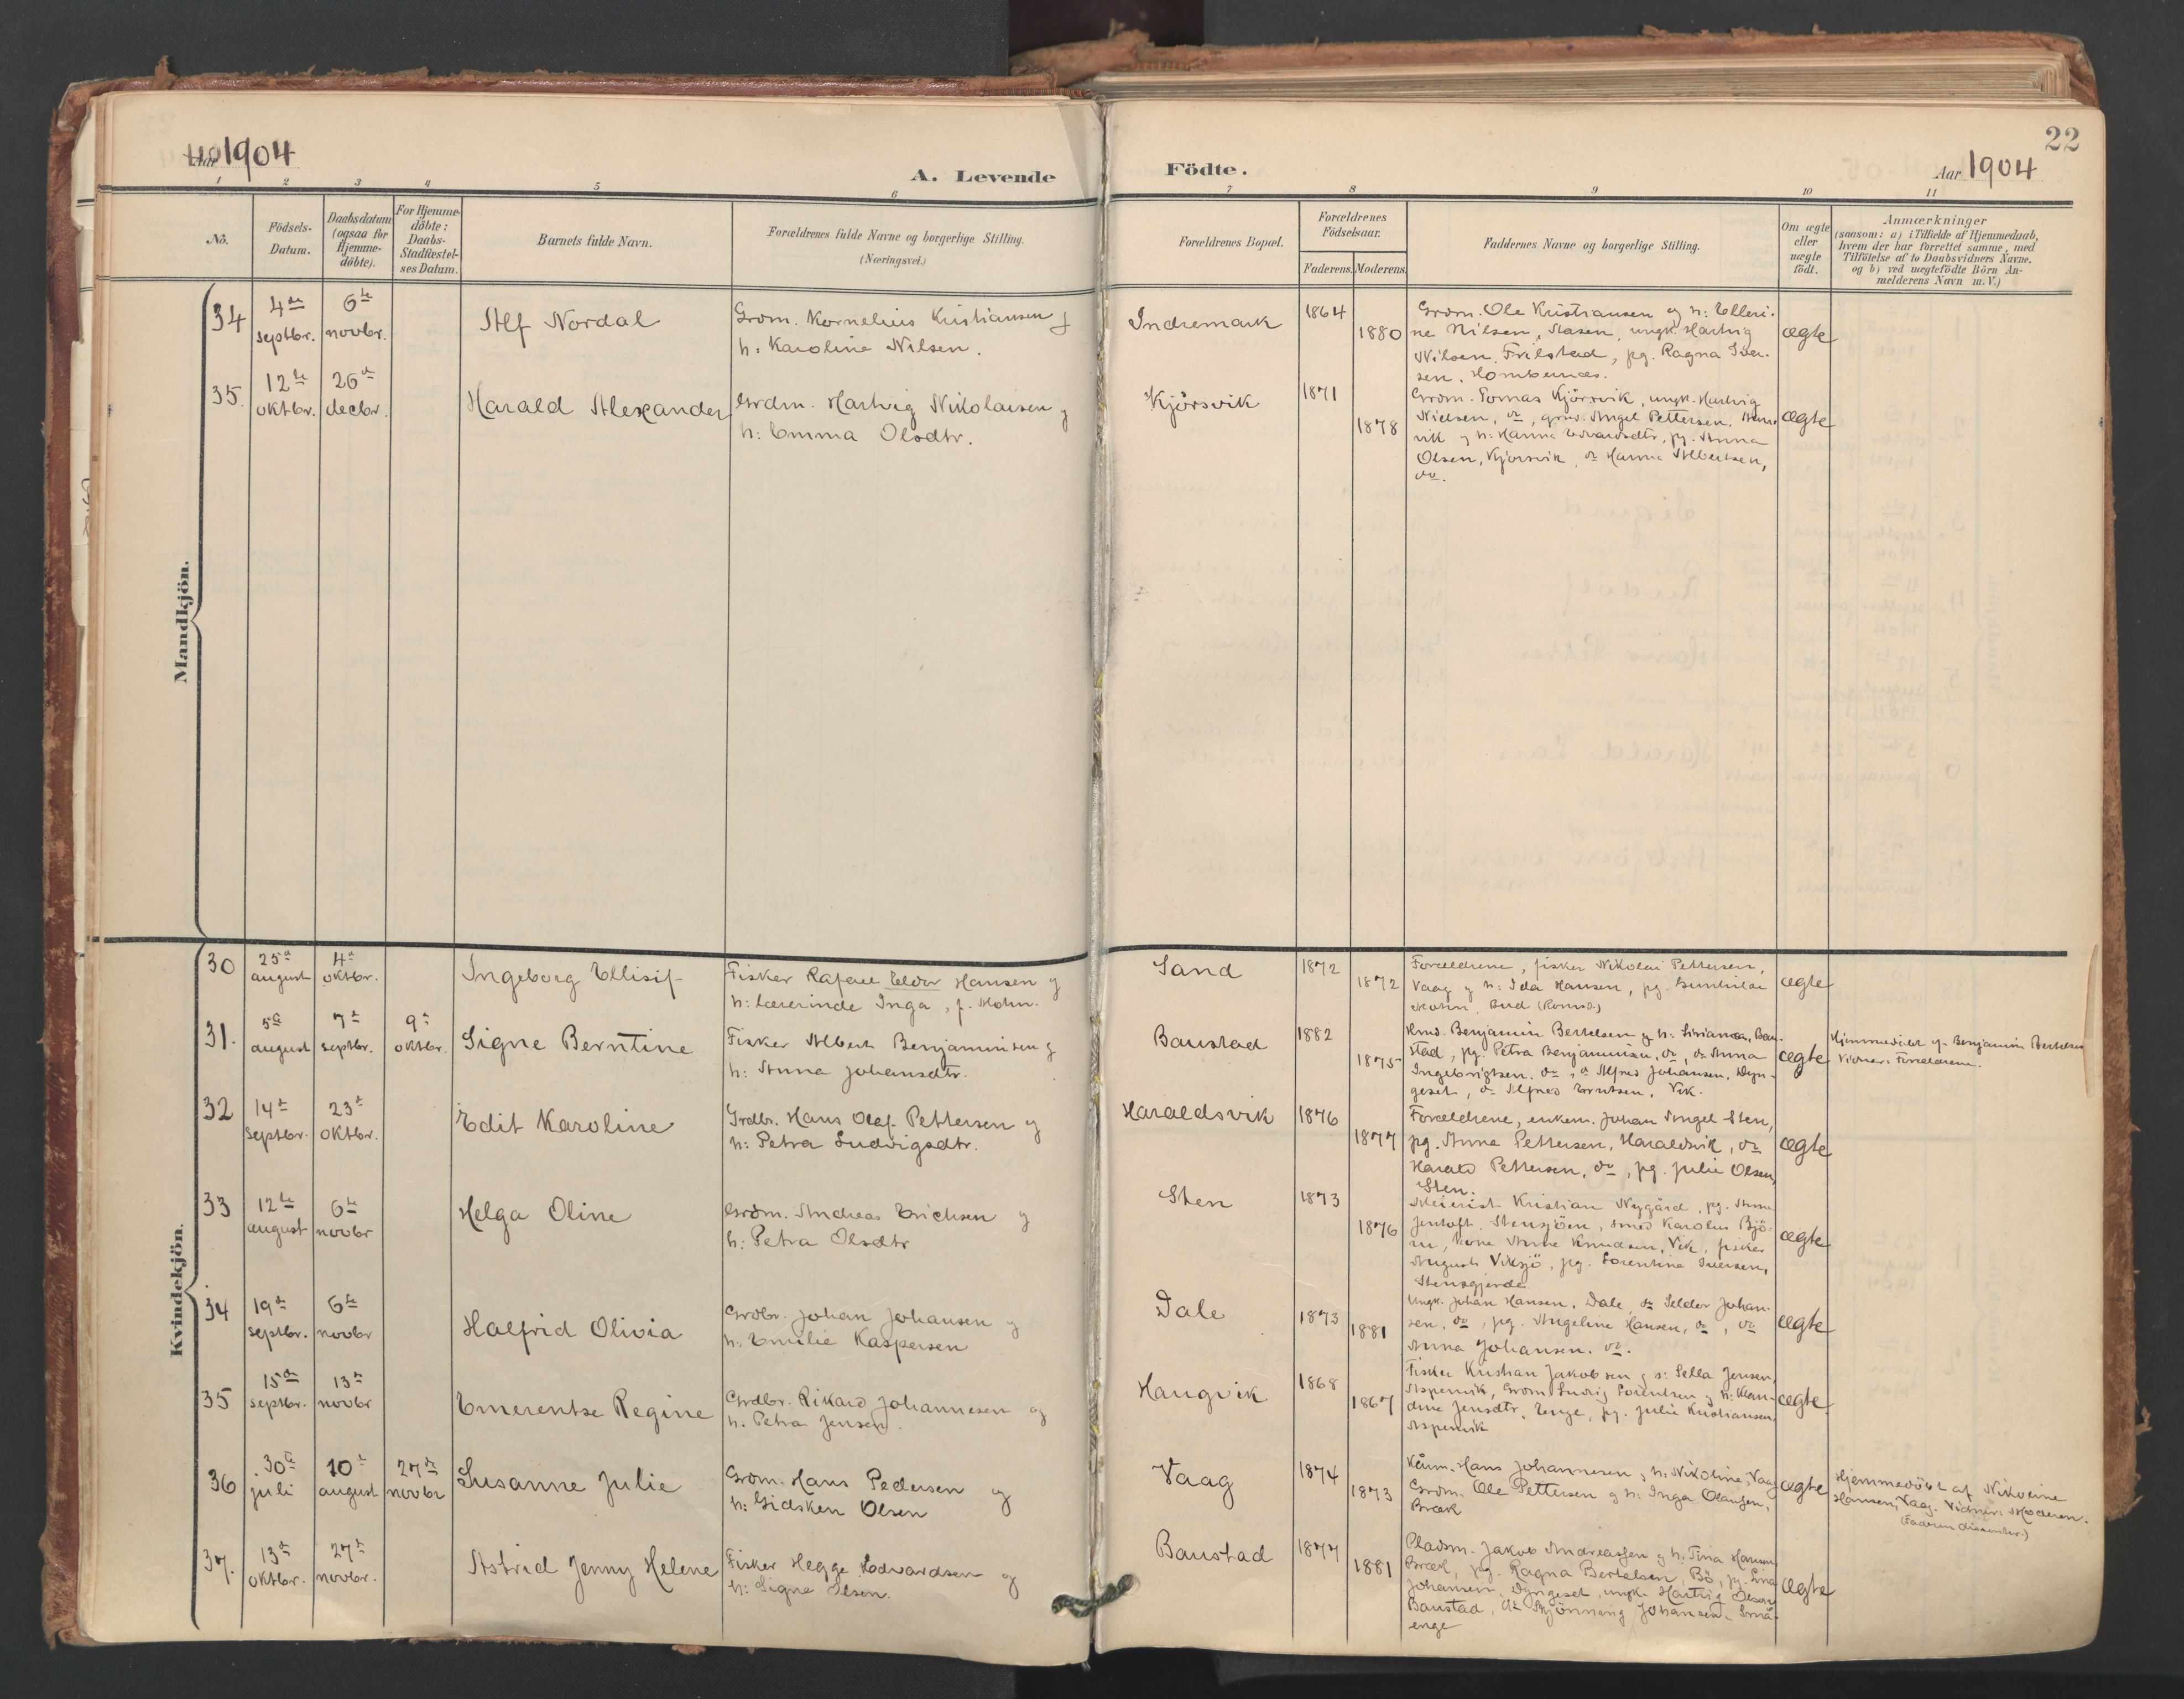 Aar 1904
A. Levende
Födte.
22
Aar 1904
1 2 3 4 5 6 7 8 9 10 11
Nö.
Födsels-
Datum.
Daabsdatum
(ogsaa for
Hjemme-
döbte).
For Hjemme-
döbte:
Daabs-
Stadfæstel-
ses Datum.
Barnets fulde Navn.
Forældrenes fulde Navne og borgerlige Stilling.
(Næringsvei.)
Forældrenes Bopæl.
Forældrenes
Födselsaar.
Faderens. Moderens.
Faddernes Navne og borgerlige Stilling.
Om ægte
eller
uægte
födt.
Anmærkninger
(saasom: a) i Tilfælde af Hjemmedaab,
hvem der har forrettet samme, med
Tilföielse af to Daabsvidners Navne.
og b) ved uægtefödte Börn An-
melderens Navn m. V.)
Mandkjön.
34
4de
septbr.
6te
novbr.
Alf Nordal
Grdm. Kornelius Kristiansen og
h: Karoline Nilsen.
Indremark
1864
1880
Grdm. Ole Kristiansen og h: Elleri-
ne Nilsen, Aasen, ungk. Hartvig
Nilsen, Frilstad, pg. Ragna Iver-
sen, Hombornes.
ægte
35.
12te
oktbr.
26de
decbr.
Harald Alexander
Grdm. Hartvig Nikolaisen og
h: Emma Olsdtr.
Kjörsvik
1871
1878
Grdm. Tomas Kjörsvik, ungk. Hartvig
Nielsen, do, grdm. Angel Pettersen,
vik og h: Hanna Edvardsdtr, pg. Anna
Olsen, Kjörsvik, do Hanna Albertsen,
do.
ægte
Kvindekjön.
30
25de
august
4de
oktbr.
Ingeborg Ellisif
Fisker Rafael Eldor Hansen og
h: lærerinde Inga, f. Mohn.
Sand
1872
1872
Forældrene, fisker Nikolai Pettersen,
Vaag og h: Ida Hansen, pg. Gunhilda
Mohn, Bud (Romsd.)
ægte
31.
5te
august
7de
septbr.
9de
oktbr.
Signe Berntine
Fisker Albert Benjaminsen og
h: Anna Johansdtr.
Baustad
1882
1875
Hmd. Benjamin Bertelsen og h: Sirianna, Bau-
stad, pg. Petra Benjaminsen, do, do Anna
Ingebrigtsen, do, do Alfred Johansen, Dyn-
geset, do Alfred Erntsen, Vik.
ægte
Hjemmedöbt af Benjamin Bertelsen
Vidner: Forældrene.
32
14de
septbr.
23de
oktbr.
Edit Karoline
Grdbr. Hans Olaf Pettersen og
h: Petra Ludvigsdtr.
Haraldsvik
1876
1877
Forældrene, enkem. Johan Angel Sten,
pg. Anna Pettersen, Haraldsvik, do
Harald Pettersen, do, pg. Julie Olsen,
Sten.
ægte
33
12te
august
6te
novbr
Helga Oline
Grdm. Andreas Erichsen og
h: Petra Olsdtr
Sten
1873
1876
Meierist Kristian Nygård, pg. Anna
Jentoft, Stensjöen, smed Karolius Bjö-
rn, kone Anne Knudsen, Vik, fisker
August Viksjö, pg. Lorentine Iversen,
Stensgjerde
ægte
34
19de
septbr.
6te
novbr
Halfrid Olivia
Grdbr. Johan Johansen og
h. Emilie Kaspersen
Dale
1873
1881
Ungk. Johan Hansen, Dale, do Selder Johan-
sen, do, pg. Angeline Hansen, do, do
Anna Johansen, do.
ægte
35
15de
septbr.
13de
novbr
Emerentse Regine
Grdbr. Rikard Johannesen og
h. Petra Jensen.
Haugvik
1868
1867
Fisker Kristian Jakobsen og h: Sella Jensen,
Aspenvik, Grdm. Ludvig Lorentsen og h: Klau-
dine Jensdtr, Enge, pg. Julie Kristiansen
Aspenvik
ægte.
36
30te
juli
10de
august
27de
novbr
Susanne Julie
Grdm. Hans Pedersen og
h: Gidsken Olsen
Vaag
1874
1873
Kårm. Hans Johannesen og h: Nikoline, Vaag
Grdm. Ole Pettersen og h: Inga Olausen,
Bræk
ægte
Hjemmedöbt af Nikoline
Hansen, Vaag. Vidner: Moderen.
(Faderen dissenter.)
37.
13de
oktbr.
27de
novbr.
Astrid Jenny Helene
Fisker Hegge Edvardsen og
h: Signe Olsen.
Baustad
1877
1881
Pladsm. Jakob Andreassen og h: Tina Hansen,
Bræk, pg. Ragna Bertelsen, Bö, pg. Lina
Johansen, Dyngeset, ungk. Hartvig Olsen
Baustad, do Hjönning Johansen, Små-
enge
ægte